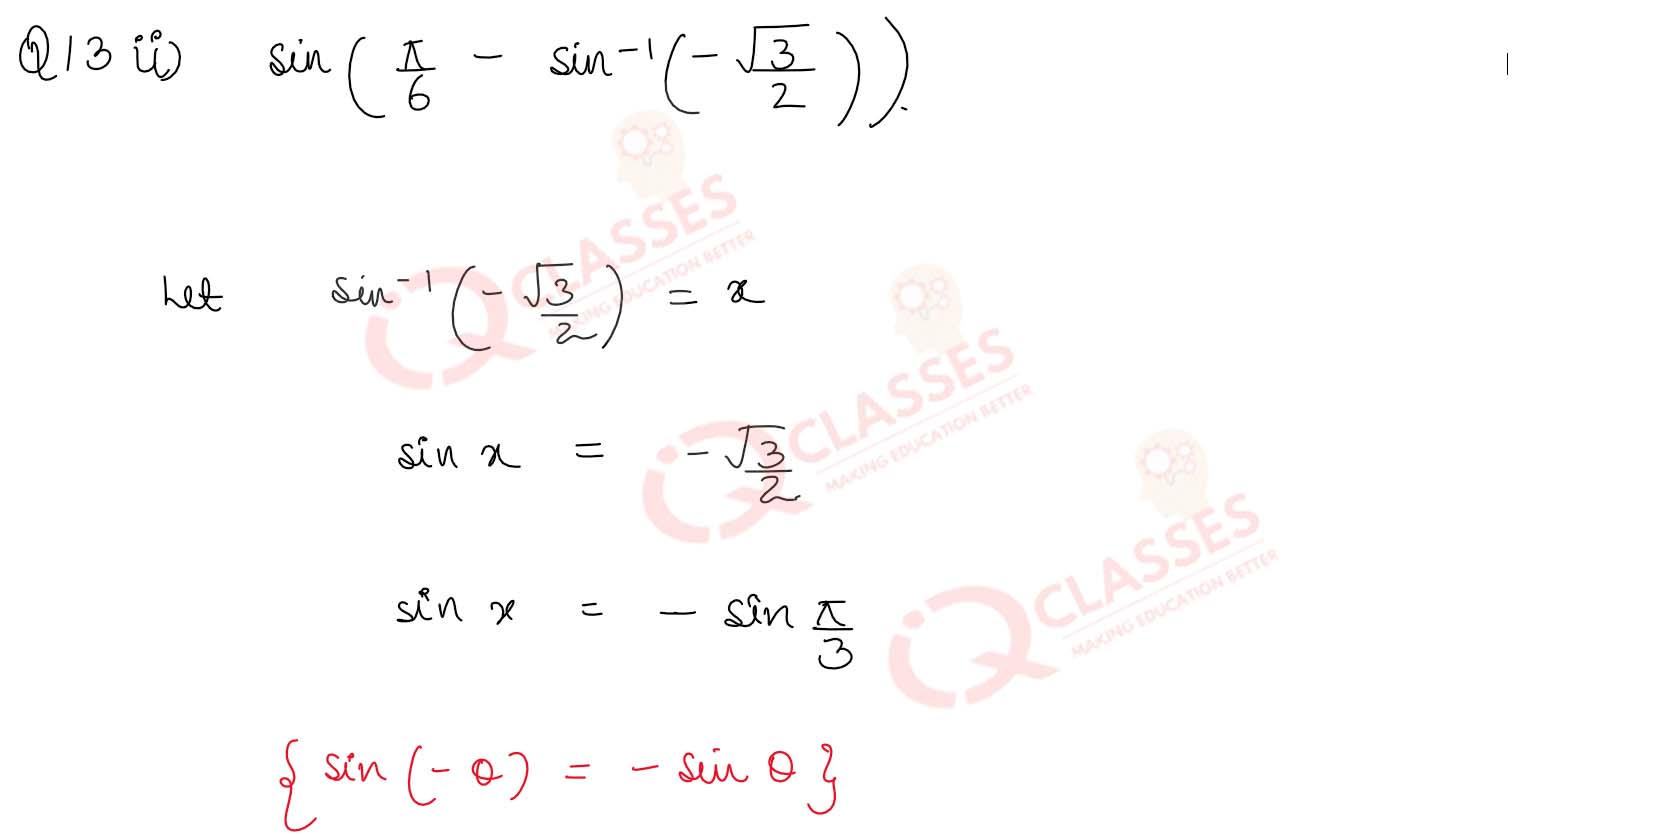 Q13 ii) sin(π/6 - sin⁻¹(-√3/2)).
Let sin⁻¹(-√3/2) = x
sin x = -√3/2
sin x = - sin π/3
{sin(-θ) = - sin θ}
CLASSES
MAKING EDUCATION BETTER
CLASSES
MAKING EDUCATION BETTER
CLASSES
MAKING EDUCATION BETTER